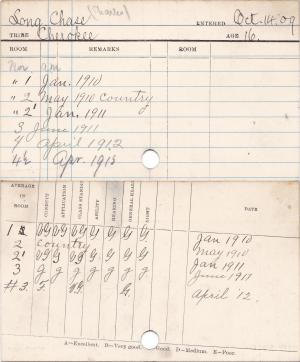 Long, Chase (Charles) ENTERED Oct-14-09
TRIBE Cherokee AGE 16
ROOM REMARKS ROOM
Nor. am
" 1 Jan. 1910
" 2 May 1910 Country
" 2' Jan. 1911
3 June 1911
4 April 1912
4½ Apr. 1913
AVERAGE IN ROOM CONDUCT APPLICATION CLASS STANDING ABILITY READING GENERAL READ. SIGHT DATE
1 VG VG VG VG G G G Jan 1910
2 Country May 1910
2' VG VG VG G G G G Jan 1911
3 g g g g g g g June 1911
#3. G April '12.
A—Excellent. B—Very good. C—Good. D—Medium. E—Poor.